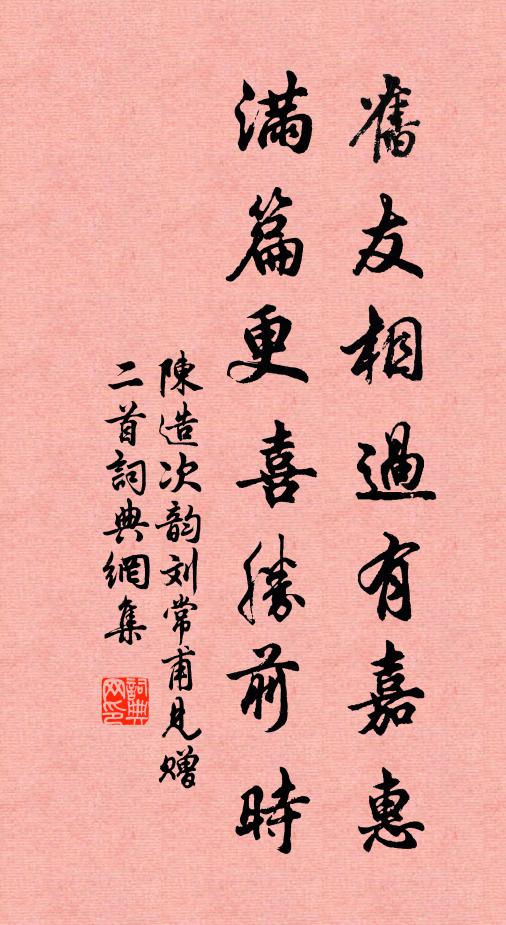 舊友相過有嘉惠
滿篇更喜勝前時
陳造次韵刘常甫見贈
二首詞典網集
詞典网印